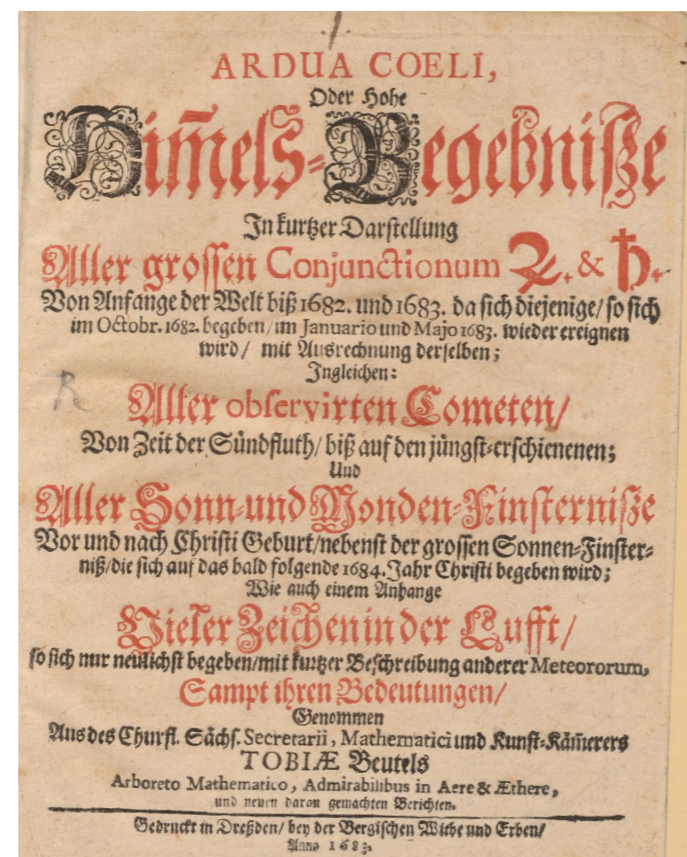 ARDUA COELI,
Oder Hohe
Him̃els-Begebniße
In kurtzer Darstellung
Aller grossen Conjunctionum ♃. & ♄.
Von Anfange der Welt biß 1682. und 1683. da sich diejenige/ so sich
im Octobr. 1682. begeben/ im Januario und Majo 1683. wieder ereignen
wird/ mit Ausrechnung derselben;
Ingleichen:
Aller observirten Cometen/
Von Zeit der Sündfluth/ biß auf den jüngst-erschienenen;
Und
Aller Sonn-und Monden-Finsterniße
Vor und nach Christi Geburt/ nebenst der grossen Sonnen-Finster-
niß/ die sich auf das bald folgende 1684. Jahr Christi begeben wird;
Wie auch einem Anhange
Vieler Zeichen in der Lufft/
so sich nur neulichst begeben/ mit kurtzer Beschreibung anderer Meteororum,
Sampt ihren Bedeutungen/
Genommen
Aus des Churfl. Sächs. Secretarii, Mathematici und Kunst-Kam̃erers
TOBIÆ Beutels
Arboreto Mathematico, Admirabilibus in Aere & Æthere,
und neuen daran gemachten Berichten.
Gedruckt in Dreßden/ bey der Bergischen Witbe und Erben/
Anno 1683.
R